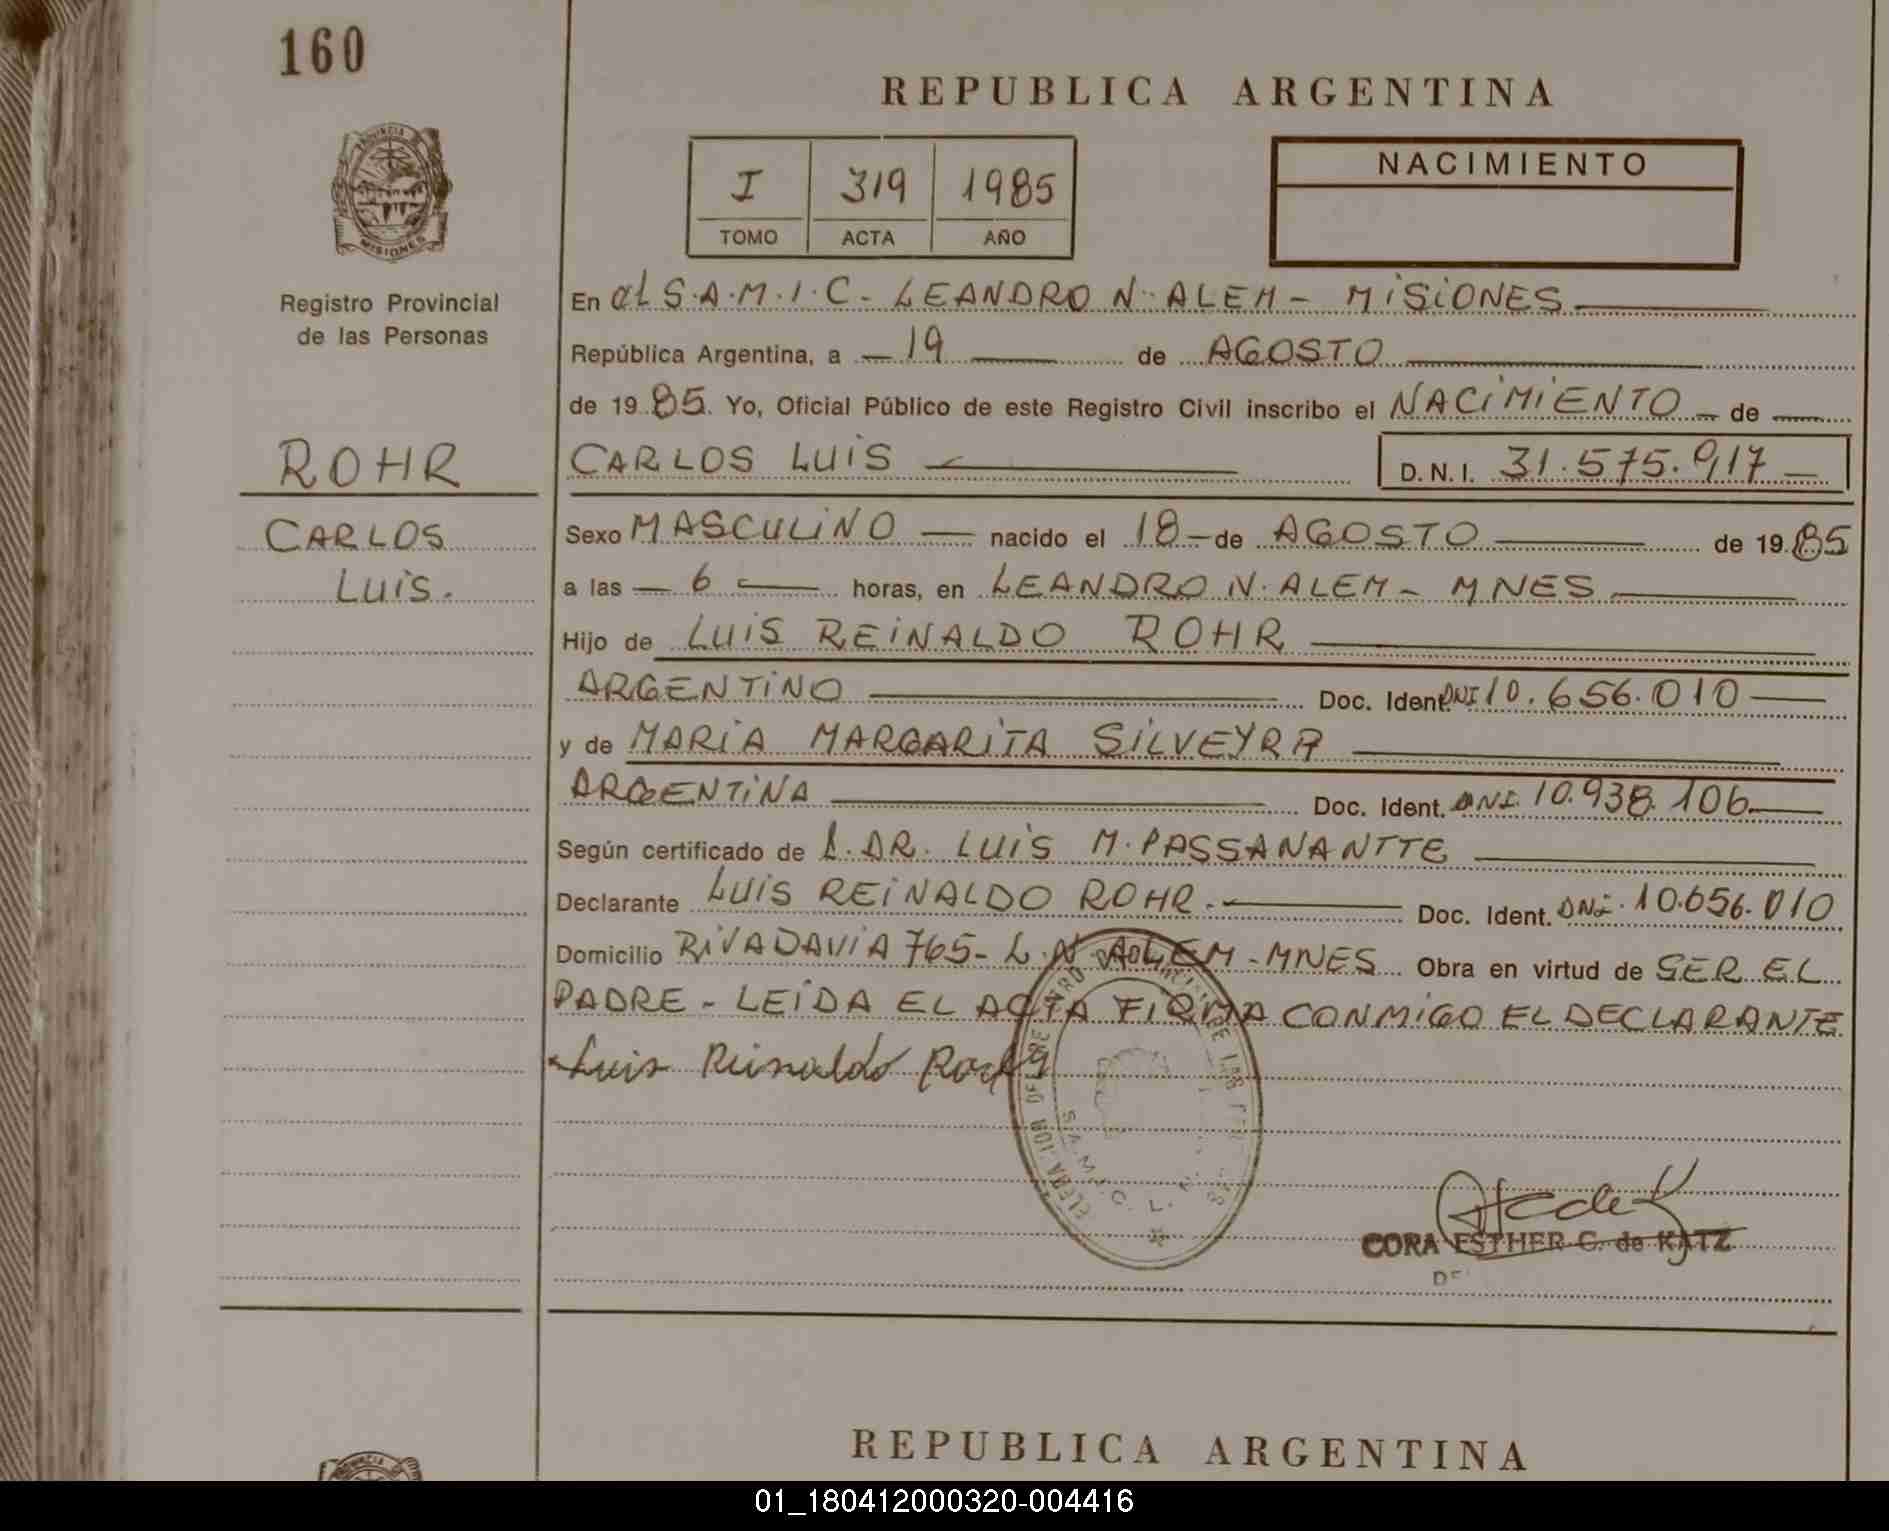 160
REPUBLICA ARGENTINA
PROVINCIA DE
MISIONES
Registro Provincial
de las Personas
I 319 1985
TOMO ACTA AÑO
NACIMIENTO
En el S.A.M.I.C- LEANDRO N. ALEM - MISIONES
República Argentina, a 19 de AGOSTO
de 1985. Yo, Oficial Público de este Registro Civil inscribo el NACIMIENTO de
ROHR
CARLOS LUIS D.N.I. 31.575.917
CARLOS
LUIS.
Sexo MASCULINO nacido el 18 de AGOSTO de 1985
a las 6 horas, en LEANDRO N. ALEM - MNES
Hijo de LUIS REINALDO ROHR
ARGENTINO Doc. Ident. DNI 10.656.010
y de MARIA MARGARITA SILVEYRA
ARGENTINA Doc. Ident. DNI. 10.938.106
Según certificado de DR. LUIS M. PASSANANTTE
Declarante LUIS REINALDO ROHR. Doc. Ident. DNI. 10.656.010
Domicilio RIVADAVIA 765- L.N ALEM - MNES Obra en virtud de SER EL
PADRE - LEIDA EL ACTA FIRMA CONMIGO EL DECLARANTE
Luis Reinaldo
S.A.M.I.C. L. N.
CORA ESTHER C. de KATZ
REPUBLICA ARGENTINA
01_180412000320-004416